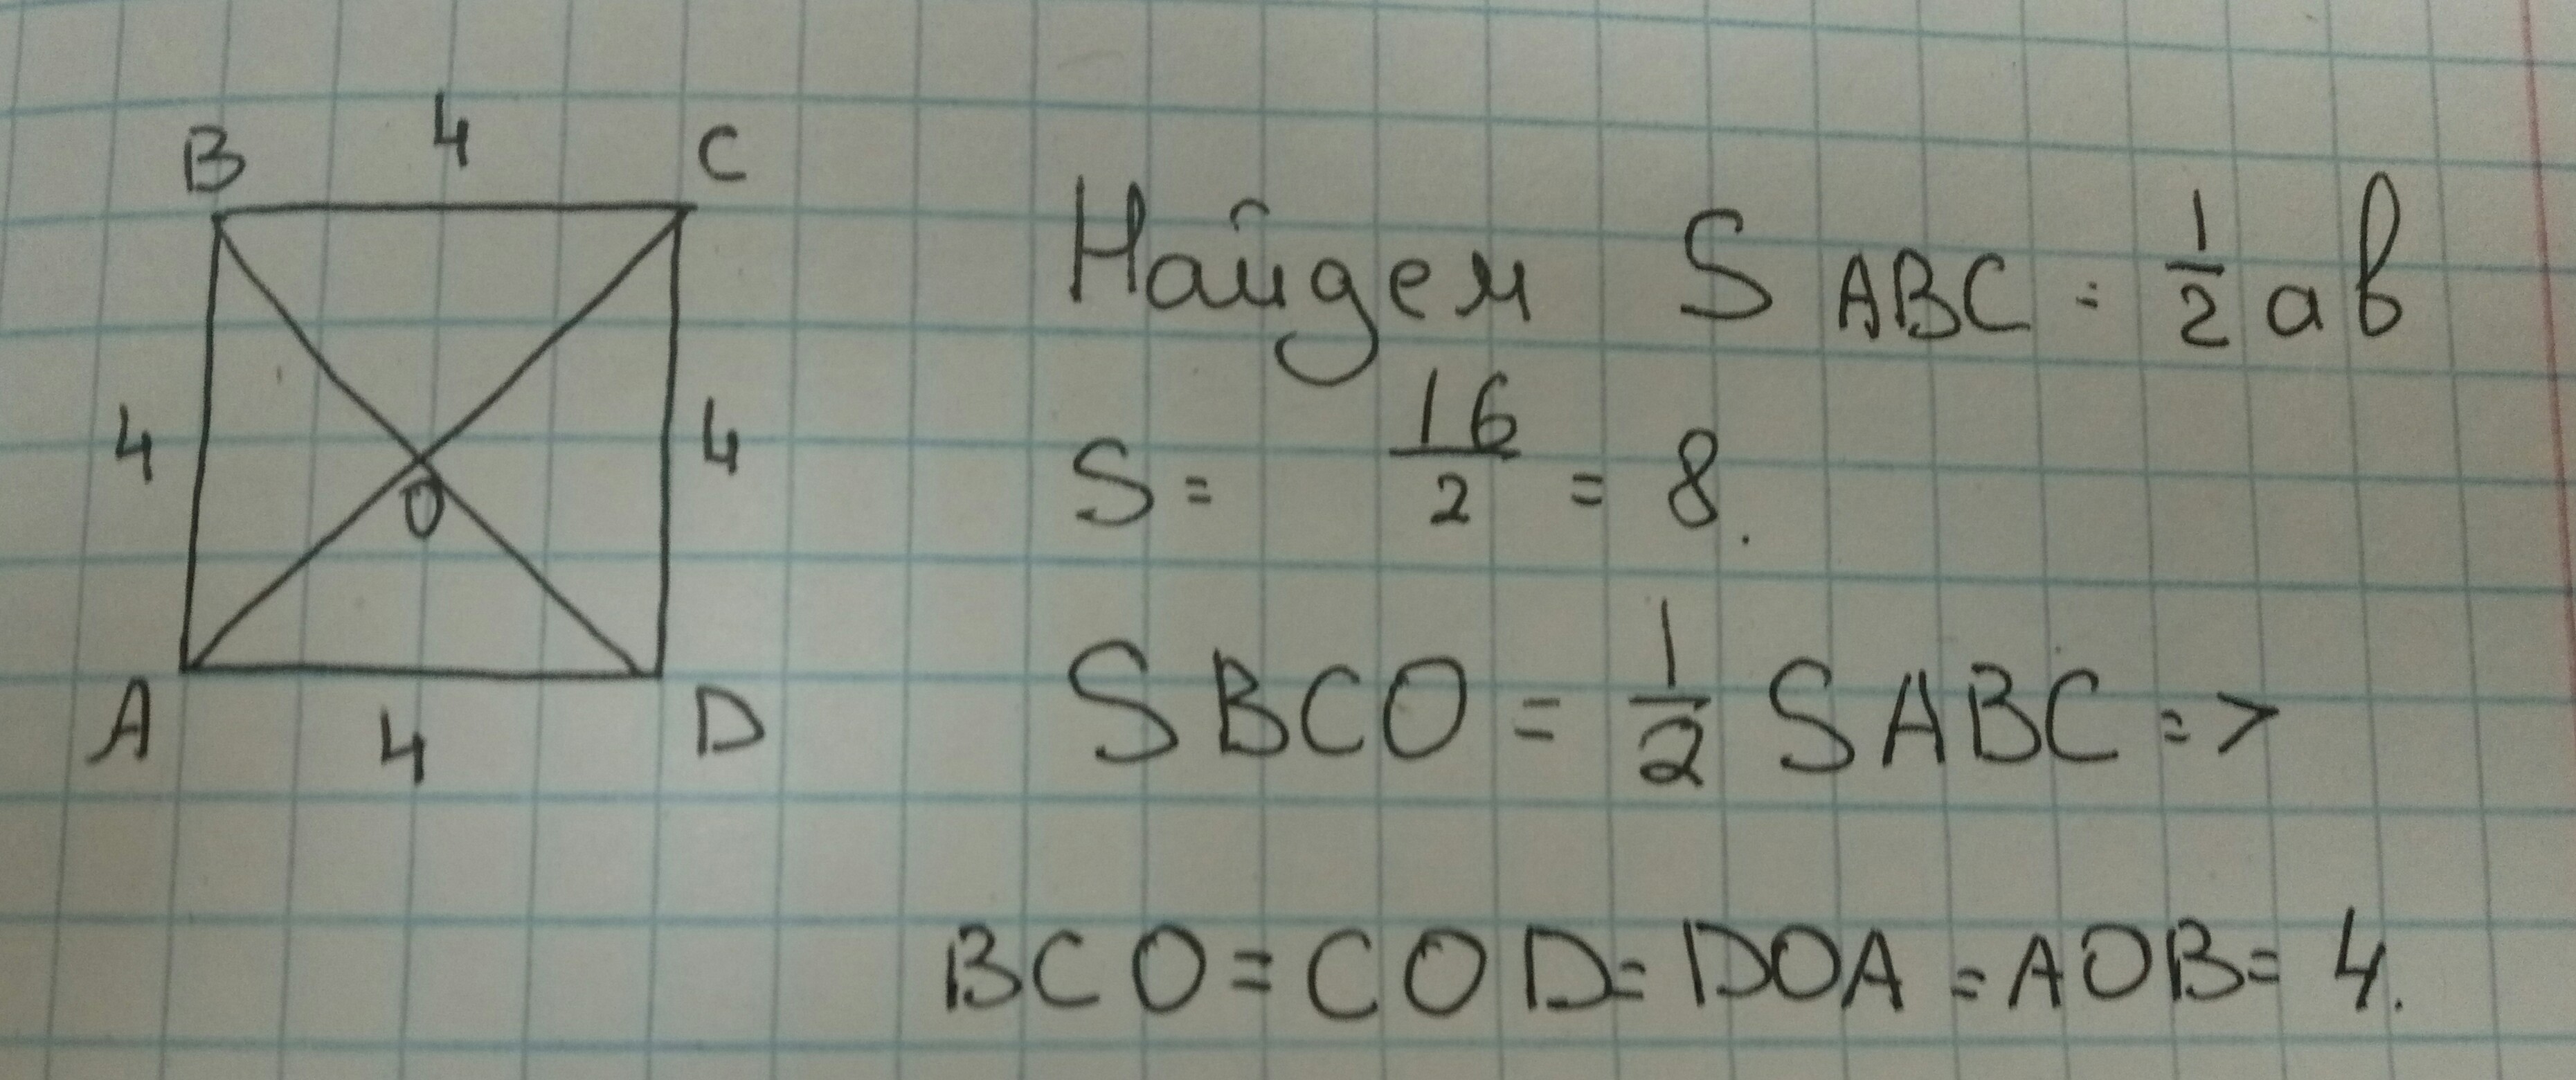 B 4 C
4 4
O
A 4 D
Найдем S ABC = 1/2 ab
S = 16/2 = 8.
SBCO = 1/2 SABC =>
BCO = COD = DOA = AOB = 4.